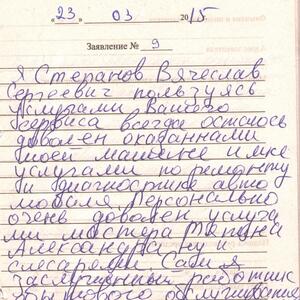 «23» 03 2015
Заявление № 9
Я Степанов Вячеслав
Сергеевич пользуясь
услугами Вашего
сервиса всегда остаюсь
доволен оказанными
моей машине и мне
услугами по ремонту
и диагностике авто
мобиля. Персонально
очень доволен услуга
ми мастера
Александра ну и
слесарями Сам я
заслуженный работник
бытового обслуживания